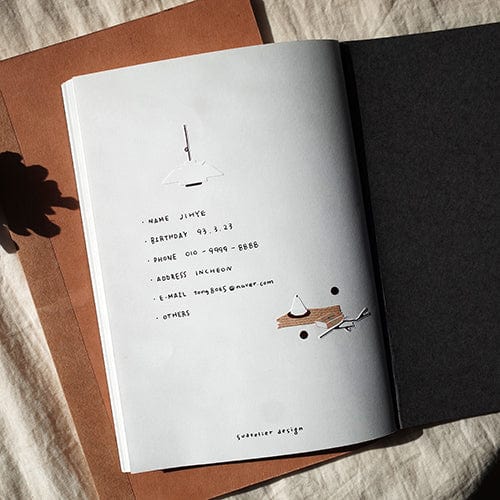 · NAME JIHYE
· BIRTHDAY 93.3.23
· PHONE 010-9999-8888
· ADDRESS INCHEON
· E-MAIL tong8085@naver.com
· OTHERS
suatelier design